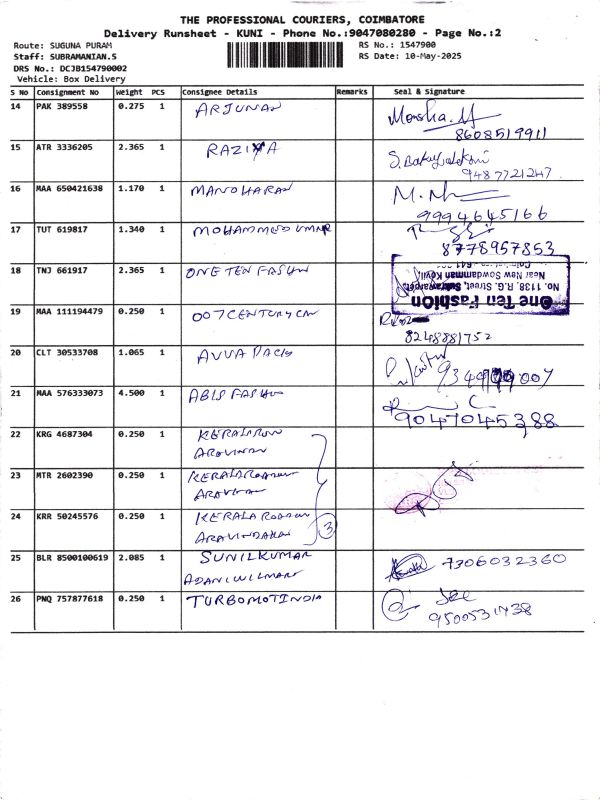 THE PROFESSIONAL COURIERS, COIMBATORE
Delivery Runsheet - KUNI - Phone No.:9047080280 - Page No.:2
Route: SUGUNA PURAM
RS No.: 1547900
Staff: SUBRAMANIAN.S
RS Date: 10-May-2025
DRS No.: DCJB154790002
Vehicle: Box Delivery
S No Consignment No Weight PCS Consignee Details Remarks Seal & Signature
14 PAK 389558 0.275 1 ARJUNAN
8608519911
15 ATR 3336205 2.365 1 RAZIYA
9487721247
16 MAA 650421638 1.170 1 MANOHARAN
9994645166
17 TUT 619817 1.340 1 MOHAMMED UMAR
8778957853
18 TNJ 661917 2.365 1 ONE TEN FASHION
One Ten Fashion
No. 1138, R.G. Street, Sukrawarpet,
Near New Sowdamman Kovil,
19 MAA 111194479 0.250 1 007 CENTURY
8248881752
20 CLT 30533708 1.065 1 AVVA PACKS
21 MAA 576333073 4.500 1 ABLS FASHION
9047045388
22 KRG 4687304 0.250 1
23 MTR 2602390 0.250 1
24 KRR 50245576 0.250 1 KERALA
3
25 BLR 8500100619 2.085 1 SUNILKUMAR
ADANIWILMAR
7306032360
26 PNQ 757877618 0.250 1 TURBOMOTINDIA
9500531438